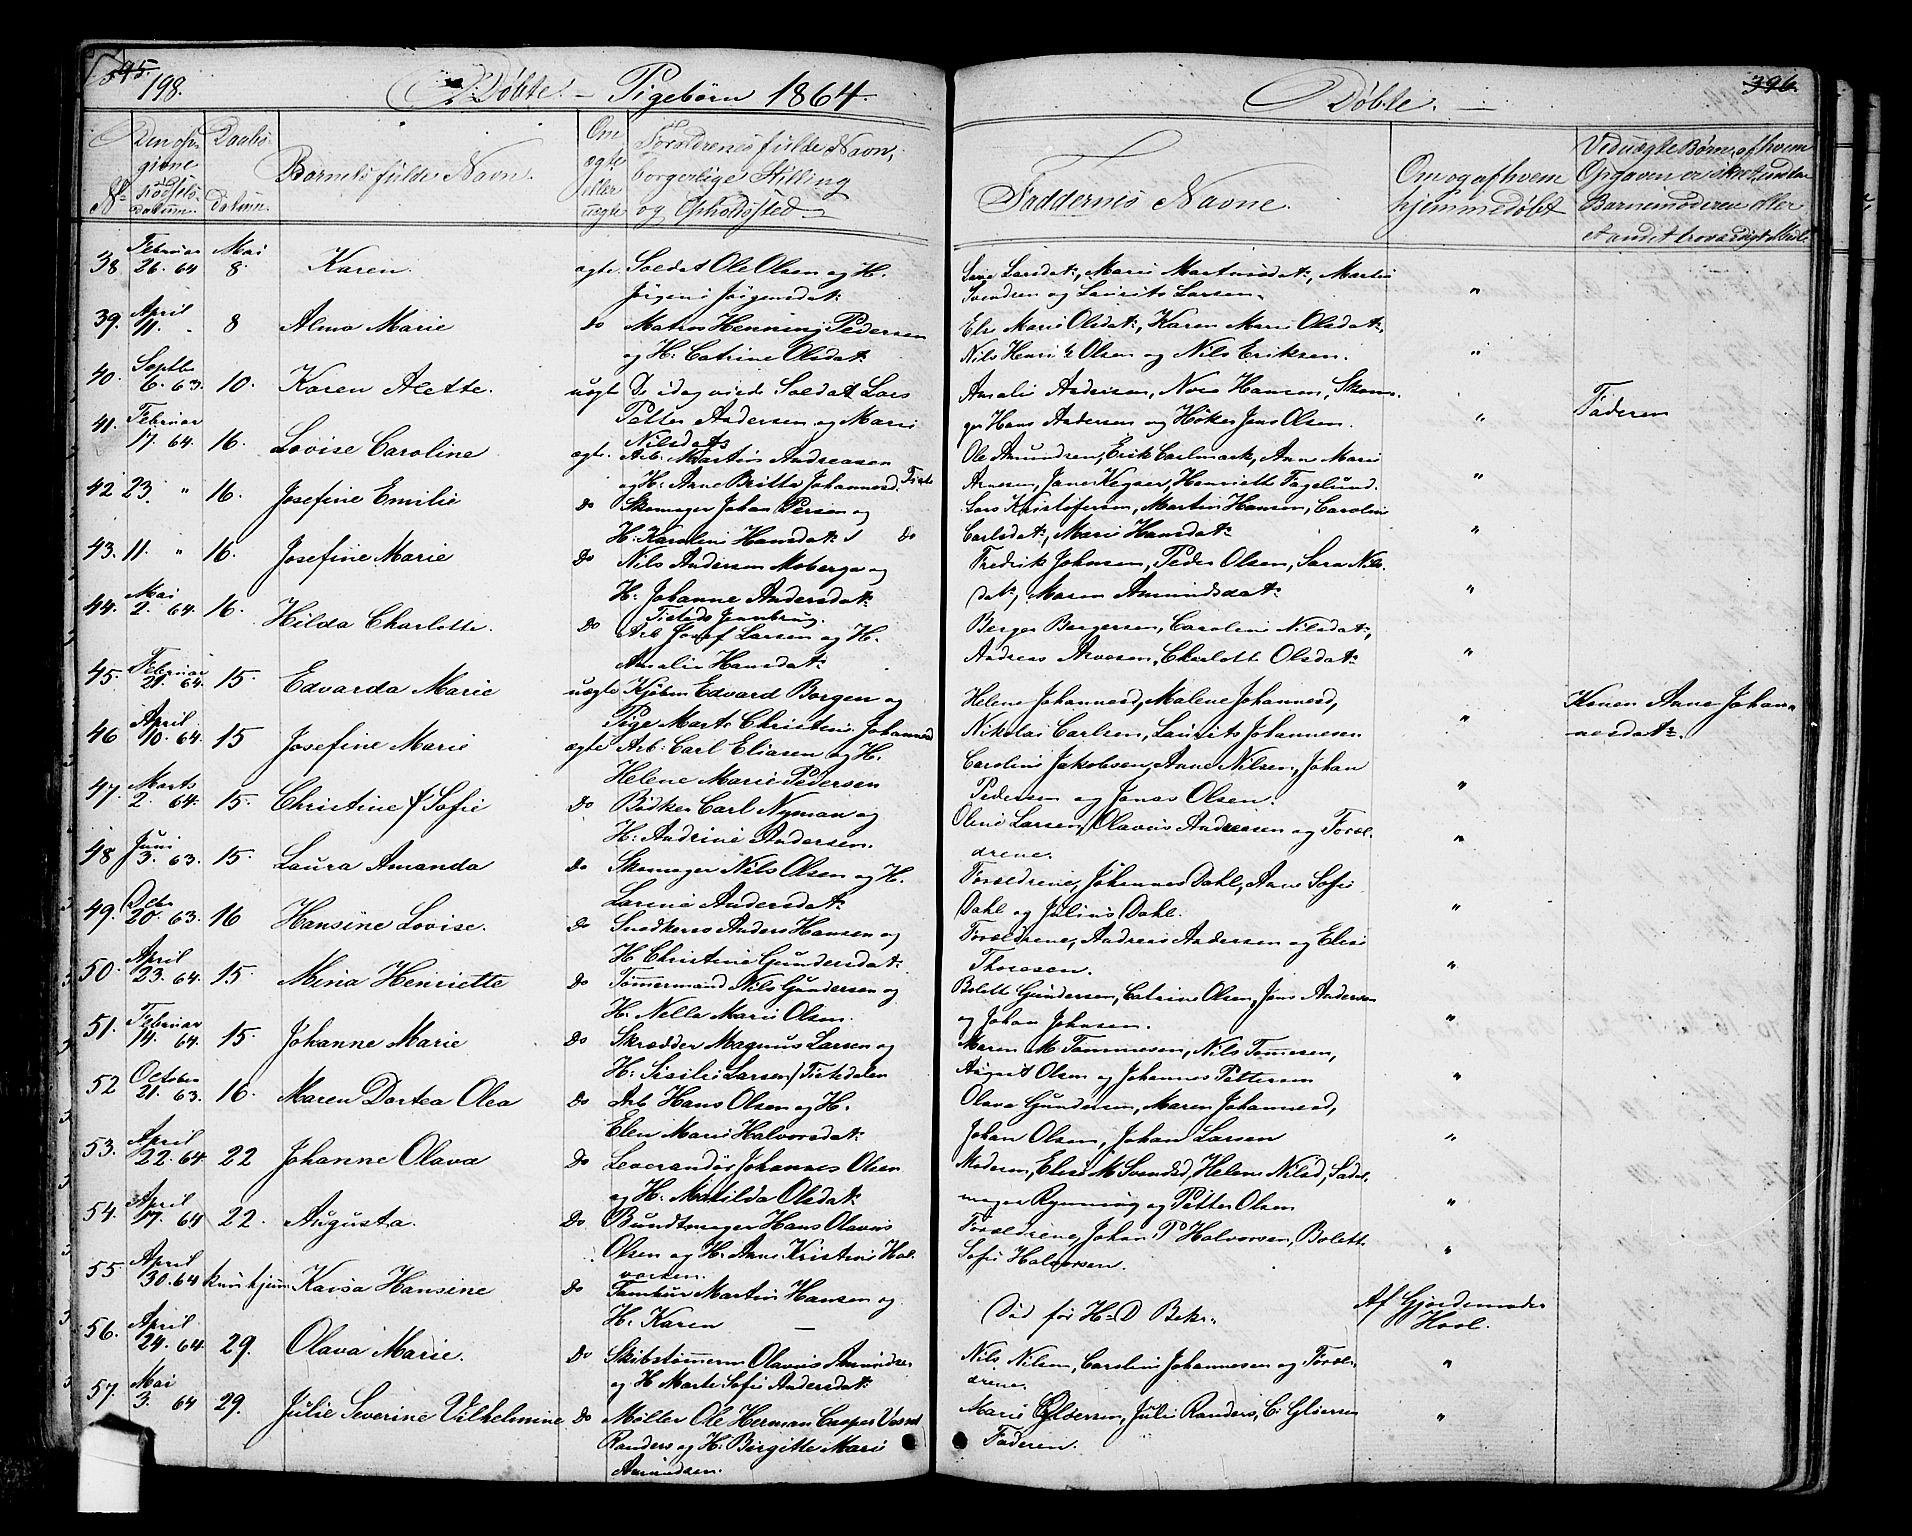 395.
198.
Døbte. — Pigebørn 1864.
No
Den opgivne Fødselsdatum.
Daabsdatum.
Barnets fulde Navn.
Om ægte eller uægte
Forældrenes fulde Navn, borgerlige Stilling og Opholdssted
38 Februar 26. 64 Mai 8. Karen. ægte. Soldat Ole Olsen og H.
Jørgine Jørgensdat:
39. April 11. " 8 Alma Marie do Matros Henning Pedersen
og H: Catrine Olsdat:
40. Septbr 6. 63. 10. Karen Alette. uægte De idag viede Soldat Lars
Petter Andersen og Marie
Nilsdat:
41. Februar 17. 64. 16. Lovise Caroline ægte. Arb: Martin Andreasen
og H: Anne Britte Johannesd. Tiste
42 23. " 16. Josefine Emilie do Skomager Johan Person og
H: Karoline Hansdat: do
43. 11. " 16. Josefine Marie do Nils Andersen Moberge og
H: Johanne Andersdat:
Tisteds Jernbrug.
44. Mai 2. 64. 16. Hilda Charlotte. do Arb Josef Larsen og H.
Amalie Hansdat:
45. Februar 21. 64. 15. Edvarda Marie uægte Kjøbm Edvard Borgen og
Pige Marte Christine Johannesd
46 April 10. 64. 15 Josefine Marie ægte Arb: Carl Eliasen og H.
Helene Marie Pedersen
47. Marts 2. 64. 15. Christine Sofie do Bødker Carl Nyman og
H: Andrine Andersen.
48 Juni 3. 63. 15. Laura Amanda do Skomager Nils Olsen og H.
Larine Andersdat:
49. Octbr 20. 63. 16 Hansine Lovise. do Snedkersv Anders Hansen og
H Christine Gundersdat:
50. April 23. 64. 15. Mina Henriette do Tømmermand Nils Gundersen og
H: Nella Marie Olsen.
51. Februar 14. 64. 15. Johanne Marie do Skrædder Magnus Larsen og
H: Sisilie Larsen / Tistedalen
52 October 21. 63. 16. Maren Dortea Olea do Arb Hans Olsen og H.
Elen Marie Halvorsdat:
53. April 22. 64. 22 Johanne Olava do Leverandør Johannes Olsen
og H. Matilda Olsdat:
54. April 17. 64 22. Augusta. do Bundtmager Hans Olavus
Olsen og H. Anne Kristine Halvorsen.
55. April 30. 64 kun hjem Kaisa Hansine do Tambur Martin Hansen og
H: Karen —
56. April 24. 64 29. Olava Marie. do Skibstømmerm Olavus Amundsen
og H Marte Sofie Andersdat:
57. Mai 3. 64 29. Julie Severine Vilhelmine do Møller Ole Herman Casper
Randers og H: Birgitte Marie
Amundsen.
396.
Døbte. —
Faddernes Navne.
Om og af hvem hjemmedøbt
Ved uægte Børn, af hvem Opgaven er skeet, under Barnemoderen eller andet troværdigt Vidne
Larsdat:, Marie Martinsdat:, Martin
Svendsen og Laurits Larsen. "
Else Marie Olsdat:, Karen Marie Olsdat:,
Nils Henrik Olsen og Nils Eriksen. "
Amalie Andersen, Nora Hansen, Skoma-
ger Hans Andersen og Høker Jens Olsen. " Faderen
Ole Amundsen, Erik Carlmark, Ane Marie
Arnesen, Jane Keyser, Henriette Fagelund. "
Lars Kristofersen, Martin Hansen, Caroline
Carlsdat:, Marie Hansdat: "
Fredrik Johnsen, Peder Olsen, Sara Nils-
dat:, Maren Amundsdat: "
Berger Bergersen, Caroline Nilsdat:,
Andreas Arvesen, Charlotte Olsdat: "
Helene Johannesd, Malene Johannesd,
Nikolai Carlsen, Laurits Johannesen " Konen Anne Johan-
nesdat:
Caroline Jakobsen, Anne Nilsen, Johan
Pedersen og Jonas Olsen. "
Oline Larsen, Olavus Andreasen og Foræl-
drene. "
Forældrene, Johannes Dahl, Anne Sofie
Dahl og Julius Dahl. "
Forældrene, Andreas Andersen og Elise
Thoresen. "
Bolette Gundersen, Catrine Olsen, Jens Andersen
og Johan Johnsen. "
Maren M Tommesen, Nils Tommesen,
August Olsen og Johannes Pettersen "
Olava Gundersen, Maren Johannesd,
Johan Olsen, Johan Larsen "
Moderen, Elise M Svendsd, Helene Nilsd, Sadel-
mager Rynning og Petter Olsen "
Forældrene, Johan P Halvorsen, Bolette
Sofie Halvorsen. "
Død før H: D Bekr. Af Gjordemoder
Hool.
Nils Nilsen, Caroline Johannesen og Foræl-
drene. "
Marie Gløersen, Julie Randers, C: Gløersen
Faderen. "